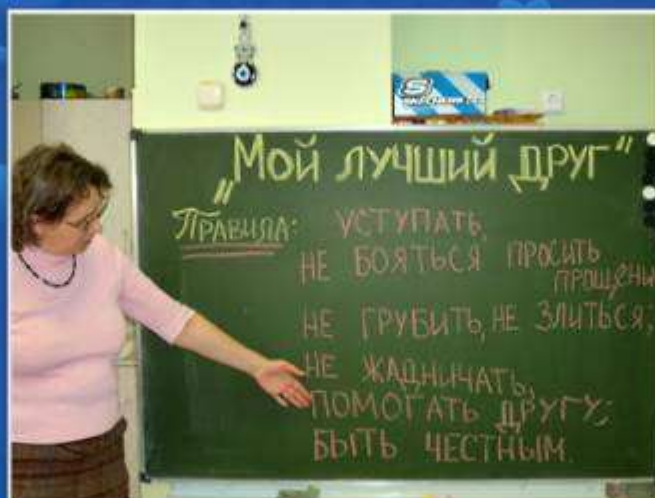 „Мой лучший друг"
Правила: уступать,
не бояться просить
прощени
не грубить, не злиться;
не жадничать,
помогать другу;
быть честным.